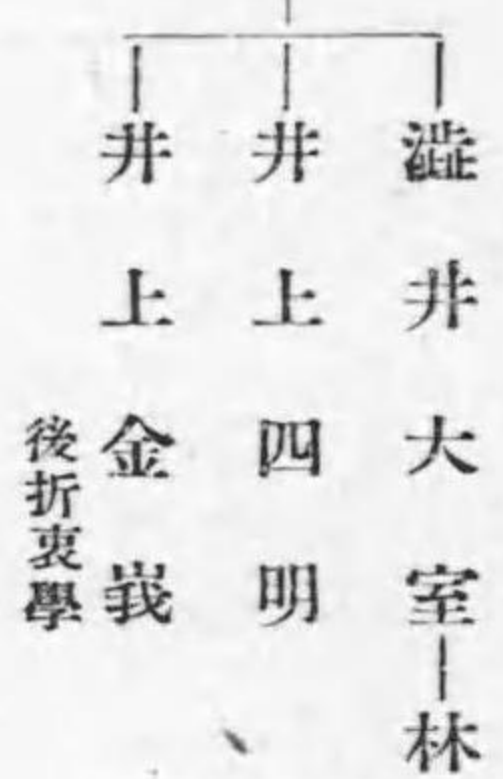 澁井大室―林
井上四明
井上金峩
後折衷學